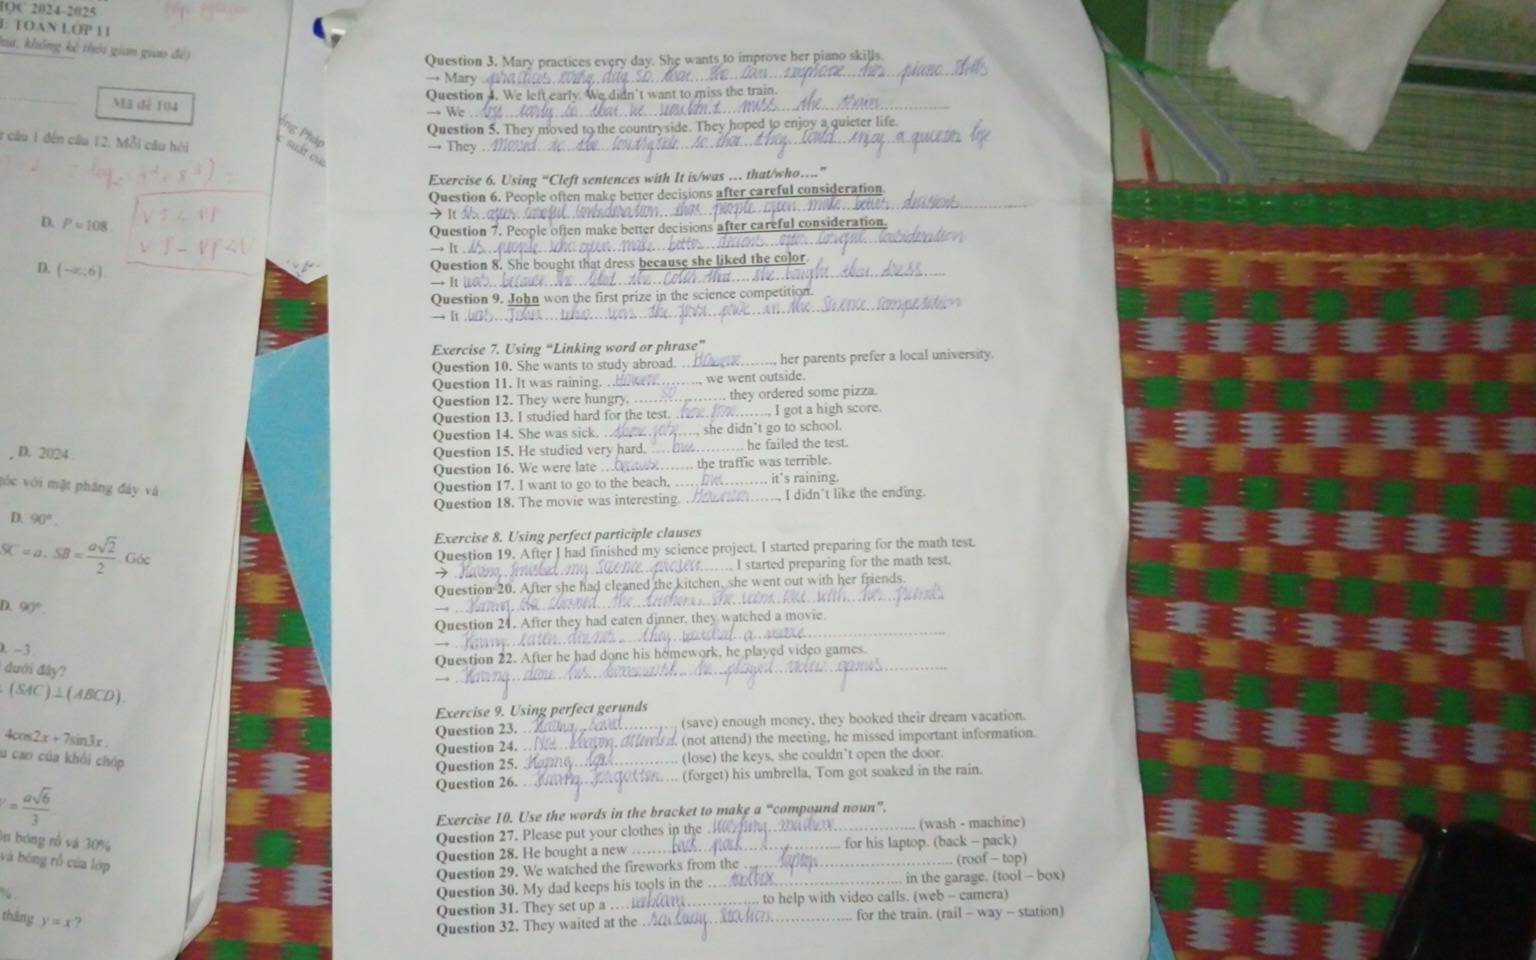 HỌC 2024-2025
: TOÁN LỚP 11
không kể thời gian giao đề)
Mã đề 104
câu 1 đến câu 12. Mỗi câu hỏi
D. P = 108.
D. (-∞;6).
D. 2024.
góc với mặt phẳng đáy và
D. 90°.
SC = a, SB = a√2/2. Góc
D. 90°.
-3.
dưới đây?
(SAC)⊥(ABCD).
4cos2x + 7sin3x.
cao của khối chóp
= a√6/3
bóng rổ và 30%
và bóng rổ của lớp
%.
thẳng y = x?
Question 3. Mary practices every day. She wants to improve her piano skills.
→ Mary practices every day so that she can improve her piano skills
Question 4. We left early. We didn't want to miss the train.
→ We left early so that we wouldn't miss the train
Question 5. They moved to the countryside. They hoped to enjoy a quieter life.
→ They moved to the countryside so that they could enjoy a quieter life
Exercise 6. Using "Cleft sentences with It is/was … that/who…."
Question 6. People often make better decisions after careful consideration.
→ It is after careful consideration that people often make better decisions
Question 7. People often make better decisions after careful consideration.
→ It is people who often make better decisions after careful consideration
Question 8. She bought that dress because she liked the color.
→ It was because she liked the color that she bought that dress
Question 9. John won the first prize in the science competition.
→ It was John who was the first prize in the science competition
Exercise 7. Using "Linking word or phrase"
Question 10. She wants to study abroad. , her parents prefer a local university.
Question 11. It was raining. , we went outside.
Question 12. They were hungry, so they ordered some pizza.
Question 13. I studied hard for the test. , I got a high score.
Question 14. She was sick. , she didn't go to school.
Question 15. He studied very hard, but he failed the test.
Question 16. We were late because the traffic was terrible.
Question 17. I want to go to the beach, but it's raining.
Question 18. The movie was interesting. However , I didn't like the ending.
Exercise 8. Using perfect participle clauses
Question 19. After I had finished my science project, I started preparing for the math test.
→ Having finished my science project , I started preparing for the math test.
Question 20. After she had cleaned the kitchen, she went out with her friends.
→ Having cleaned the kitchen, she went out with her friends
Question 21. After they had eaten dinner, they watched a movie.
→ Having eaten dinner, they watched a movie
Question 22. After he had done his homework, he played video games.
→ Having done his homework, he played video games
Exercise 9. Using perfect gerunds
Question 23. Having saved (save) enough money, they booked their dream vacation.
Question 24. Not attended (not attend) the meeting, he missed important information.
Question 25. Having lost (lose) the keys, she couldn't open the door.
Question 26. Having forgotten (forget) his umbrella, Tom got soaked in the rain.
Exercise 10. Use the words in the bracket to make a "compound noun".
Question 27. Please put your clothes in the washing machine (wash - machine)
Question 28. He bought a new back pack for his laptop. (back – pack)
Question 29. We watched the fireworks from the (roof – top)
Question 30. My dad keeps his tools in the toolbox in the garage. (tool – box)
Question 31. They set up a webcam to help with video calls. (web – camera)
Question 32. They waited at the railway station for the train. (rail – way – station)